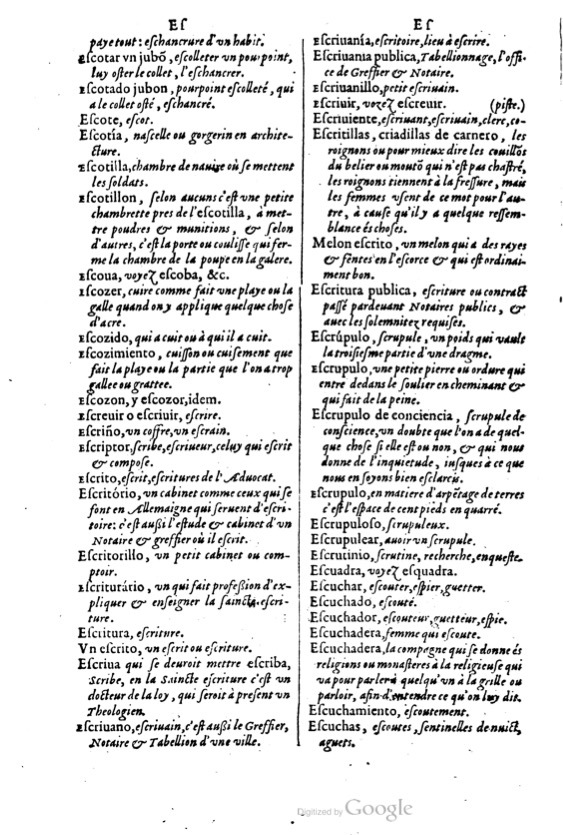 Eſ
paye tout: eſchancrure d'vn habit.
Eſcotar vn jubõ, eſcolleter vn pourpoint,
luy oſter le collet, l'eſchancrer.
Eſcotado jubon, pourpoint eſcolleté, qui
a le collet oſté, eſchancré.
Eſcote, eſcot.
Eſcotía, naſcelle ou gorgerin en archite-
cture.
Eſcotilla, chambre de nauire où ſe mettent
les ſoldats.
Eſcotillon, ſelon aucuns c'eſt vne petite
chambrette pres de l'eſcotilla, à met-
tre poudres & munitions, & ſelon
d'autres, c'eſt la porte ou couliſſe qui fer-
me la chambre de la poupe en la galere.
Eſcoua, voyez eſcoba, &c.
Eſcozer, cuire comme fait vne playe ou la
galle quand on y applique quelque choſe
d'acre.
Eſcozido, qui a cuit ou à qui il a cuit.
Eſcozimiento, cuiſſon ou cuiſement que
fait la playe ou la partie que l'on a trop
gallee ou grattee.
Eſcozon, y eſcozor, idem.
Eſcreuir o eſcriuir, eſcrire.
Eſcriño, vn coffre, vn eſcrain.
Eſcriptor, ſcribe, eſcriueur, celuy qui eſcrit
& compoſe.
Eſcrito, eſcrit, eſcritures de l'Aduocat.
Eſcritório, vn cabinet comme ceux qui ſe
font en Allemaigne qui ſeruent d'eſcri-
toire: c'eſt außi l'eſtude & cabinet d'vn
Notaire & greffier où il eſcrit.
Eſcritorillo, vn petit cabinet ou com-
ptoir.
Eſcriturário, vn qui fait profeßion d'ex-
pliquer & enſeigner la ſaincte eſcri-
ture.
Eſcritura, eſcriture.
Vn eſcrito, vn eſcrit ou eſcriture.
Eſcriua qui ſe deuroit mettre eſcriba,
Scribe, en la Saincte eſcriture c'eſt vn
docteur de la loy, qui ſeroit à preſent vn
Theologien.
Eſcriuano, eſcriuain, c'eſt außi le Greffier,
Notaire & Tabellion d'vne ville.
Eſ
Eſcriuanía, eſcritoire, lieu à eſcrire.
Eſcriuania publica, Tabellionnage, l'offi-
ce de Greffier & Notaire.
Eſcriuanillo, petit eſcriuain.
Eſcriuir, voyez eſcreuir. (piſte.)
Eſcriuiente, eſcriuant, eſcriuain, clerc, co-
Eſcritillas, criadillas de carnero, les
roignons ou pour mieux dire les couillõs
du belier ou moutõ qui n'eſt pas chaſtré,
les roignons tiennent à la freſſure, mais
les femmes vſent de ce mot pour l'au-
tre, à cauſe qu'il y a quelque reſſem-
blance és choſes.
Melon eſcrito, vn melon qui a des rayes
& fentes en l'eſcorce & qui eſt ordinai-
ment bon.
Eſcritura publica, eſcriture ou contract
paſſé pardeuant Notaires publics, &
auec les ſolemnitez requiſes.
Eſcrúpulo, ſcrupule, vn poids qui vault
la troiſieſme partie d'vne dragme.
Eſcrupulo, vne petite pierre ou ordure qui
entre dedans le ſoulier en cheminant &
qui fait de la peine.
Eſcrupulo de conciencia, ſcrupule de
conſcience, vn doubte que l'on a de quel-
que choſe ſi elle eſt ou non, & qui nous
donne de l'inquietude, iuſques à ce que
nous en ſoyons bien eſclarcis.
Eſcrupulo, en matiere d'arpẽtage de terres
c'eſt l'eſpace de cent pieds en quarré.
Eſcrupuloſo, ſcrupuleux.
Eſcrupulear, auoir vn ſcrupule.
Eſcrutinio, ſcrutine, recherche, enqueſte.
Eſcuadra, voyez eſquadra.
Eſcuchar, eſcouter, eſpier, guetter.
Eſcuchado, eſcouté.
Eſcuchador, eſcouteur, guetteur, eſpie.
Eſcuchadera, femme qui eſcoute.
Eſcuchadera, la compagne qui ſe donne és
religions ou monaſteres à la religieuſe qui
va pour parler à quelqu'vn à la grille ou
parloir, afin d'entendre ce qu'on luy dit.
Eſcuchamiento, eſcoutement.
Eſcuchas, eſcoutes, ſentinelles de nuict,
aguets.
Digitized by Google